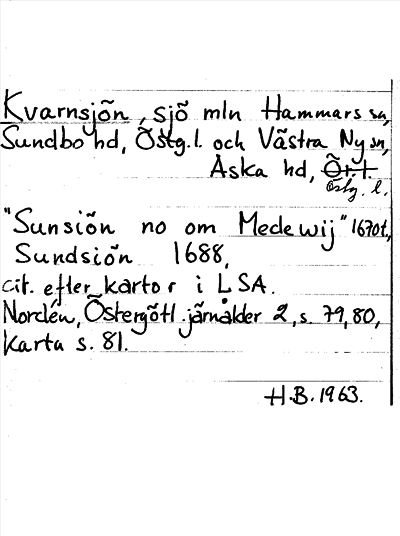 Kvarnsjön, sjö mln Hammars sn,
Sundbo hd, Östg.l. och Västra Ny sn,
Aska hd, Ört
Östg. l.
"Sunsiön no om Medewij" 1670t,
Sundsiön 1688,
cit. efter kartor i LSA.
Nordén, Östergötl. järnålder 2, s. 79, 80,
Karta s. 81.
H.B. 1963.